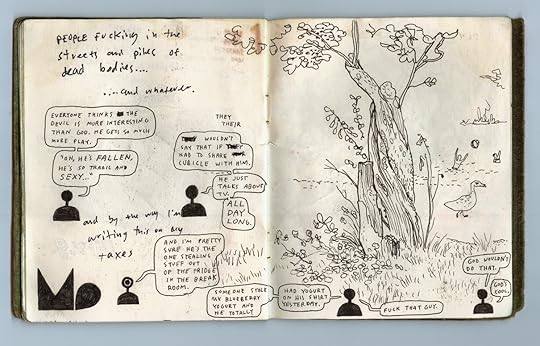 PEOPLE fucking in the
streets and piles of
dead bodies....
....and whatever.
EVERYONE THINKS THE
DEVIL IS MORE INTERESTING
THAN GOD. HE GETS SO MUCH
MORE PLAY.
"OH, HE'S FALLEN,
HE'S SO TRAGIC AND
SEXY..."
THEY
THEIR
WOULDN'T
SAY THAT IF THEY
HAD TO SHARE
CUBICLE WITH HIM.
HE JUST
TALKS ABOUT
TV.
ALL
DAY
LONG.
and by the way I'm
writing this on my
taxes
AND I'M PRETTY
SURE HE'S THE
ONE STEALING
STUFF OUT
OF THE FRIDGE
IN THE BREAK
ROOM.
SOMEONE STOLE
MY BLUEBERRY
YOGURT AND
HE TOTALLY
HAD YOGURT
ON HIS SHIRT
YESTERDAY.
FUCK THAT GUY.
GOD WOULDN'T
DO THAT.
GOD'S
COOL.